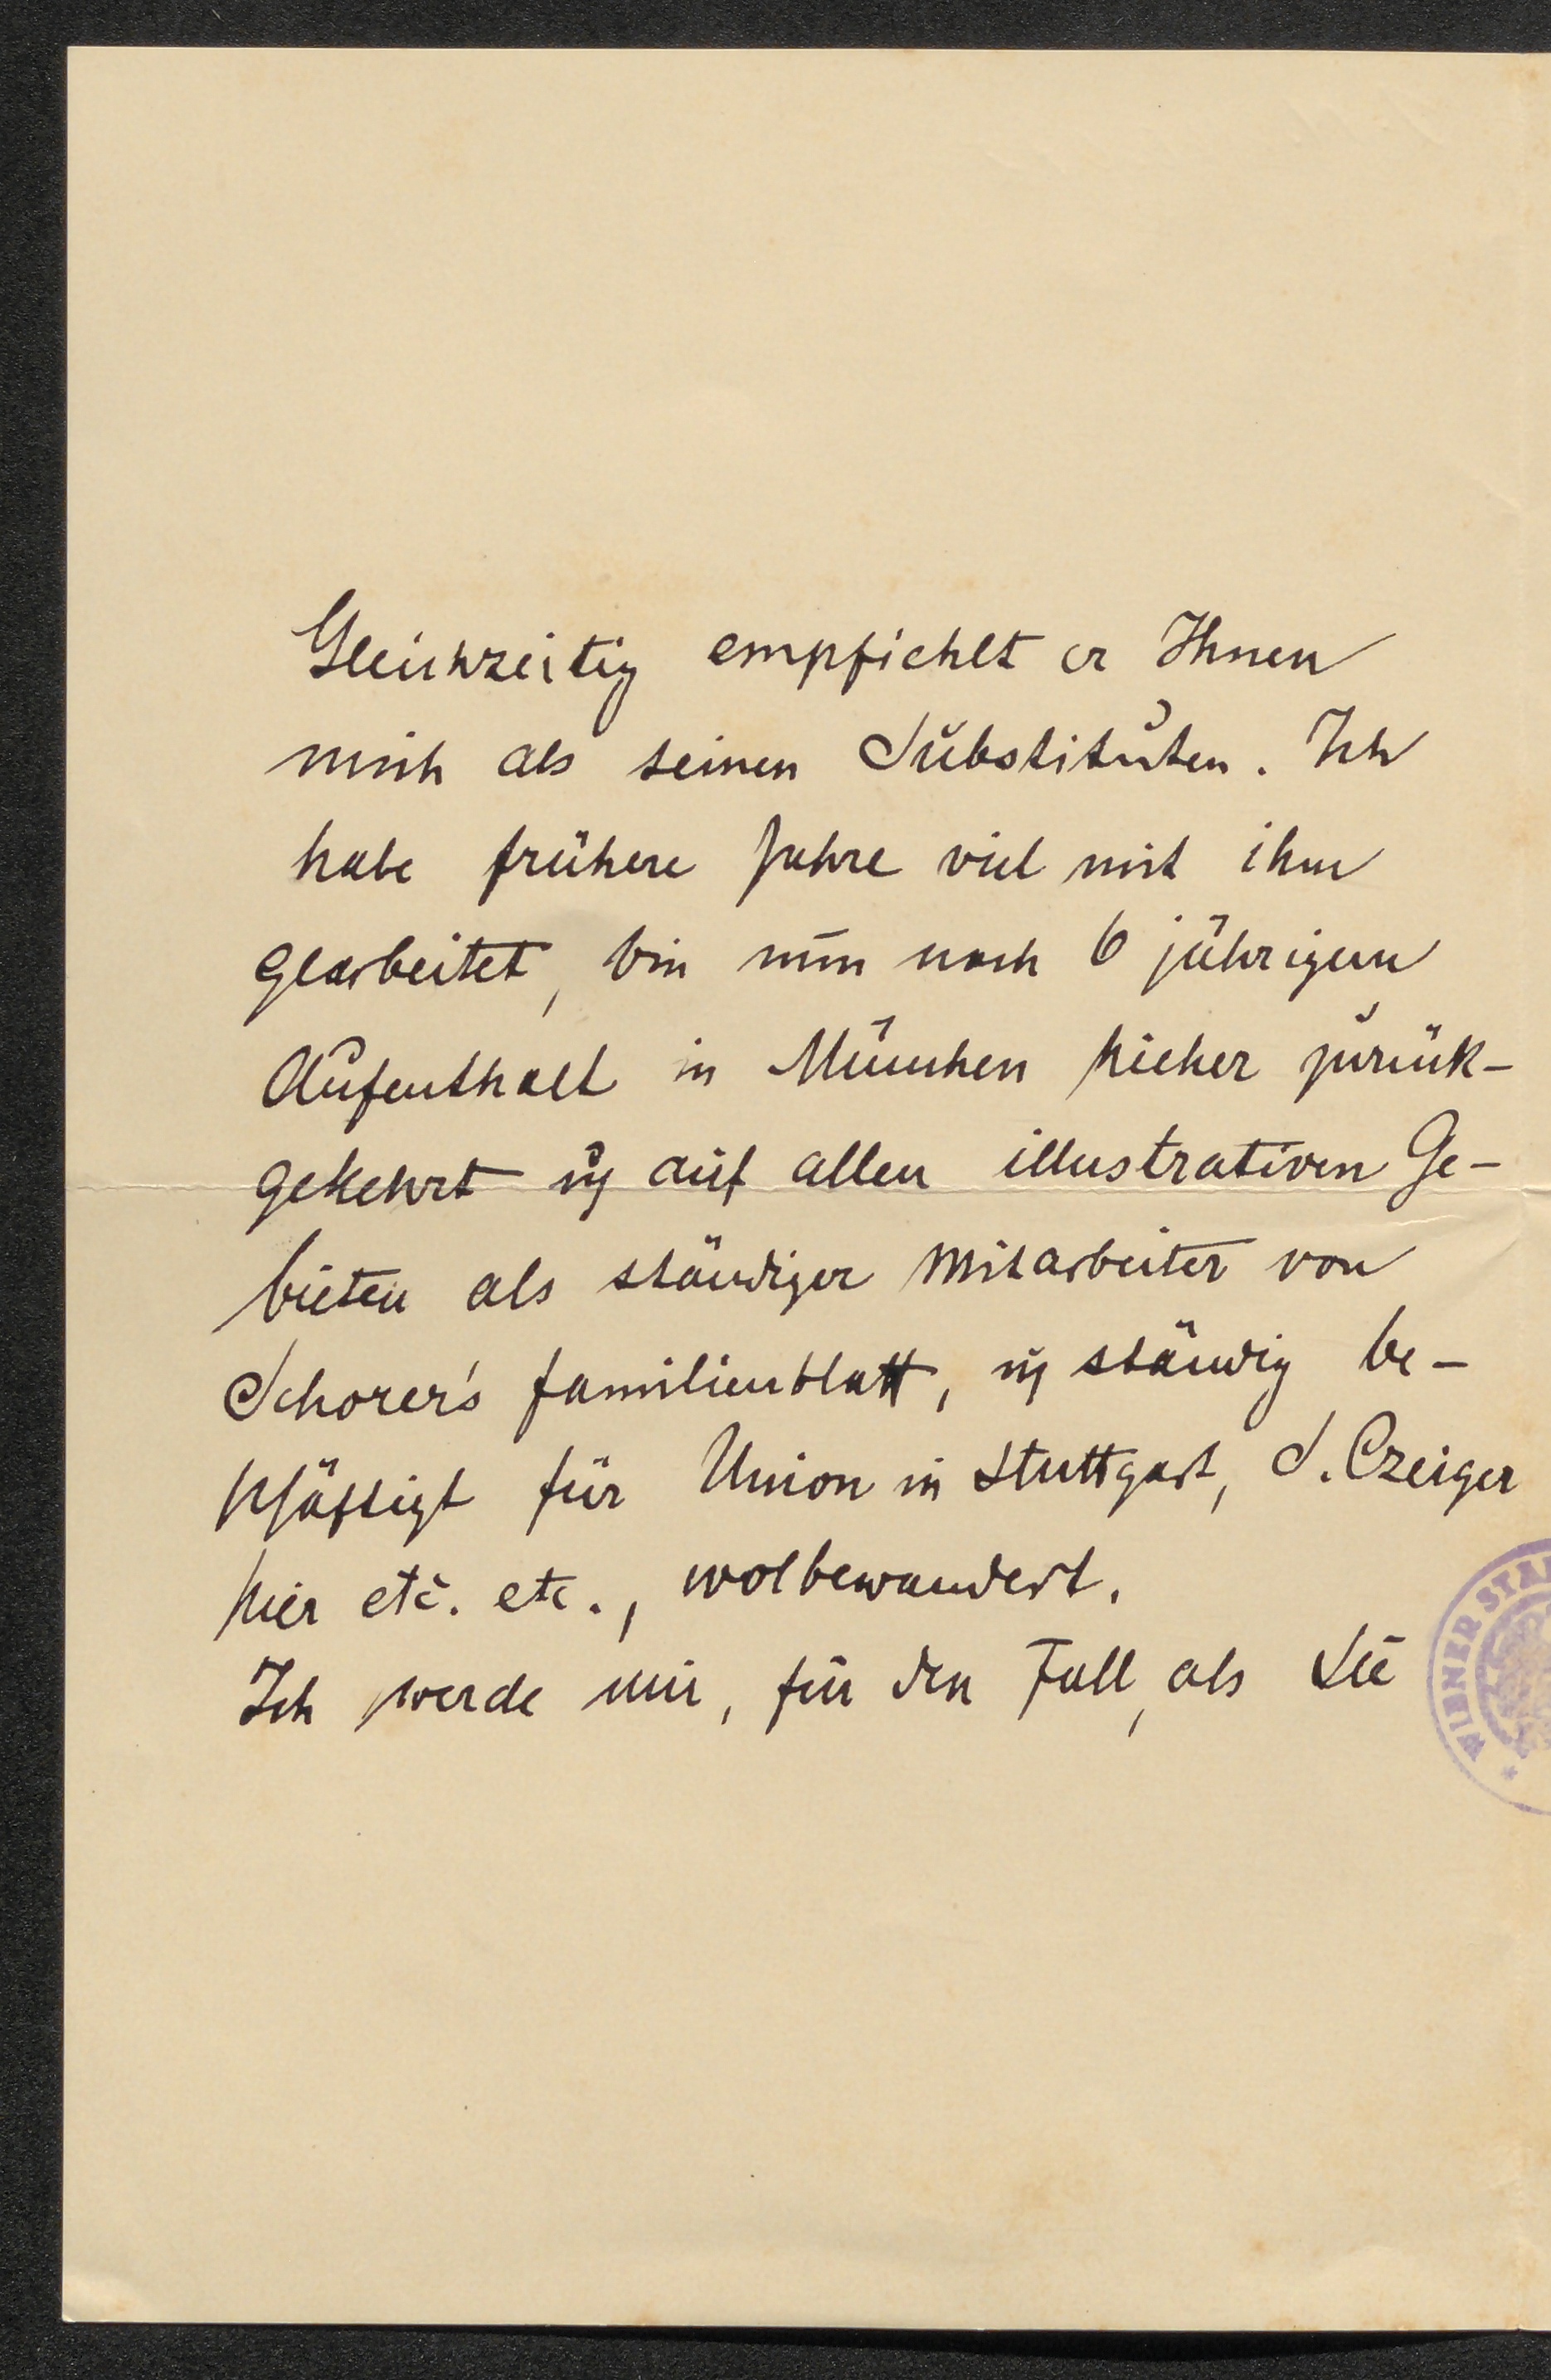 Gleichzeitig empfiehlt er Ihnen
mich als seinen Substituten. Ich
habe frühere Jahre viel mit ihm
gearbeitet, bin nun nach 6 jährigem
Aufenthalt in München hieher zurük-
gekehrt u auf allen illustrativen Ge-
bieten als ständiger Mitarbeiter von
Schorer's Familienblatt, u ständig be-
schäftigt für Union in Stuttgart, S. Czeiger
hier etc. etc., wolbewandert.
Ich werde mir, für den Fall, als Sie
WIENER STA